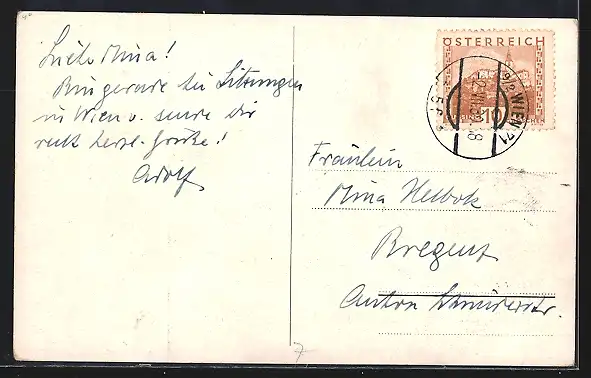 Liebe Mina!
Bin gerade bei Sitzungen
in Wien u. sende dir
recht herzl. Grüße!
Adolf
ÖSTERREICH
10
WIEN 71
Fräulein
Mina Helbok
Bregenz
Anton Schneiderstr.
7